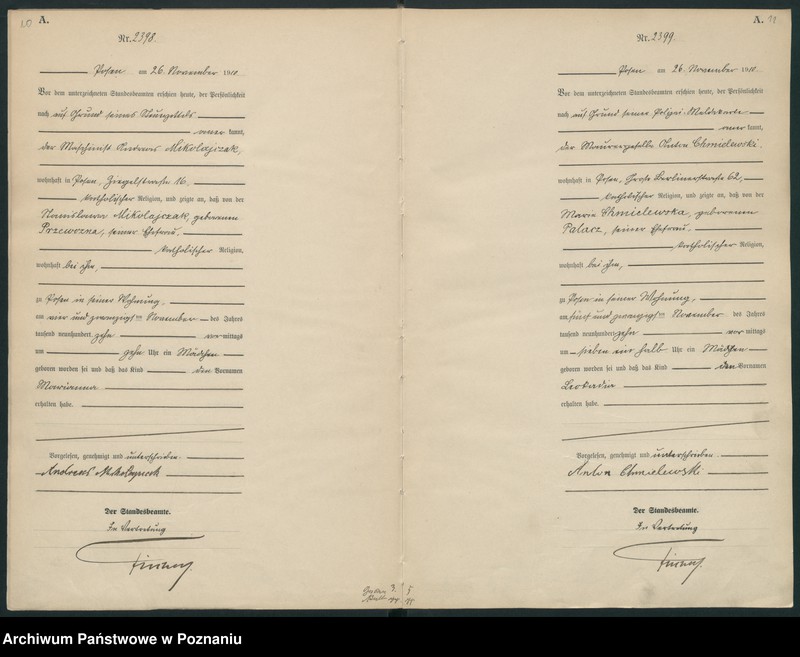 10 A.
Nr. 2398.
Posen am 26. November 1910.
Vor dem unterzeichneten Standesbeamten erschien heute, der Persönlichkeit
nach auf Grund seines Steuerzettels
kannt,
der Maschinist Andreas Mikolajczak,
wohnhaft in Posen, Ziegelstrasse 16,
katholischer Religion, und zeigte an, daß von der
Stanislawa Mikolajczak, geborenen
Przewozna, seiner Ehefrau,
katholischer Religion,
wohnhaft bei ihm,
zu Posen in seiner Wohnung,
am vier und zwanzigsten November des Jahres
tausend neunhundert zehn vormittags
um zehn Uhr ein Mädchen
geboren worden sei und daß das Kind den Vornamen
Marianna
erhalten habe.
Vorgelesen, genehmigt und unterschrieben.
Andreas Mikolajczak
Der Standesbeamte.
In Vertretung
A. 11
Nr. 2399.
Posen am 26. November 1910.
Vor dem unterzeichneten Standesbeamten erschien heute, der Persönlichkeit
nach auf Grund seiner Polizei-Meldekarte
kannt,
der Maurergeselle Anton Chmielewski.
wohnhaft in Posen, Große Berlinerstraße 62,
katholischer Religion, und zeigte an, daß von der
Marie Chmielewska, geborenen
Palacz, seiner Ehefrau,
katholischer Religion,
wohnhaft bei ihm,
zu Posen in seiner Wohnung,
am fünf und zwanzigsten November des Jahres
tausend neunhundert zehn vormittags
um sieben ein halb Uhr ein Mädchen
geboren worden sei und daß das Kind den Vornamen
Leokadia
erhalten habe.
Vorgelesen, genehmigt und unterschrieben.
Anton Chmielewski
Der Standesbeamte.
In Vertretung
Archiwum Państwowe w Poznaniu